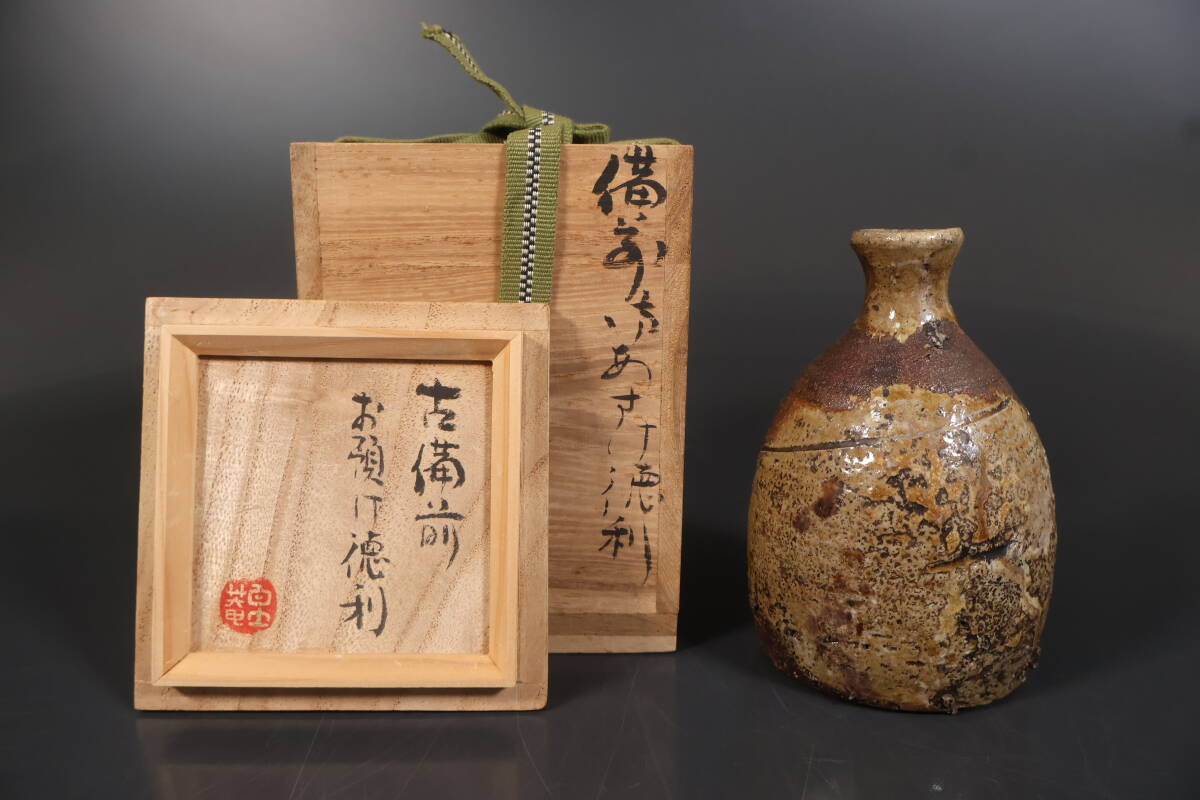 備前お
あずけ徳利
古備前
お預け徳利